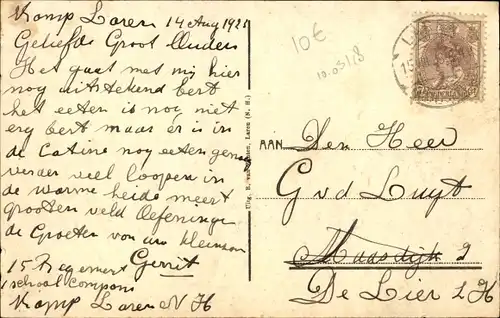 Kamp Laren 14 Aug 1921
Geliefde Groot Ouders
Het gaat met mij hier
nog uitstekend bert
het eeten is nog niet
erg bert maar er is in
de Catine nog eeten genoeg
verder veel loopen in
de warme heide meert
grooten veld Oefeninge
de Groeten van uw kleinzoon
Gerrit
15 Regement
1 school Compani
Kamp Laren N H
10€
10.0518
Uitg. R. van Laren (N. H.)
15
AAN Den Heer
G v d Luyt
Maasdijk 2
De Lier Z H